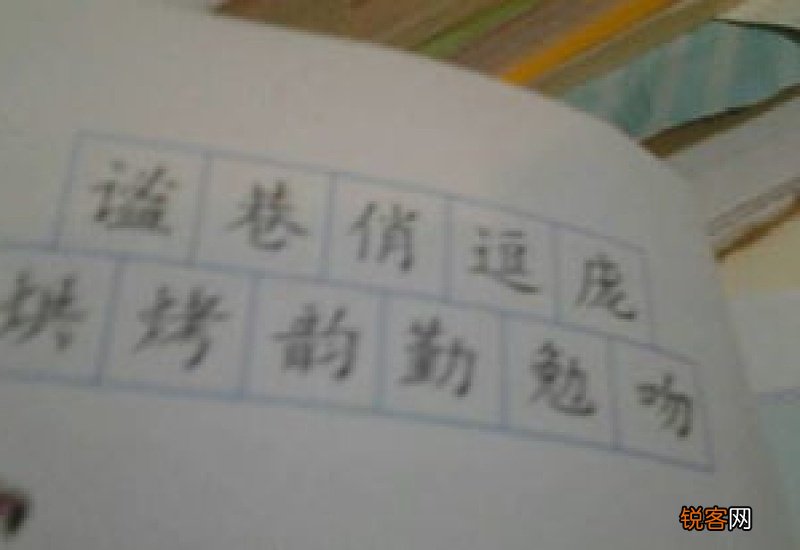 谧巷俏逗庞
烘烤韵勤勉吻
锐客网